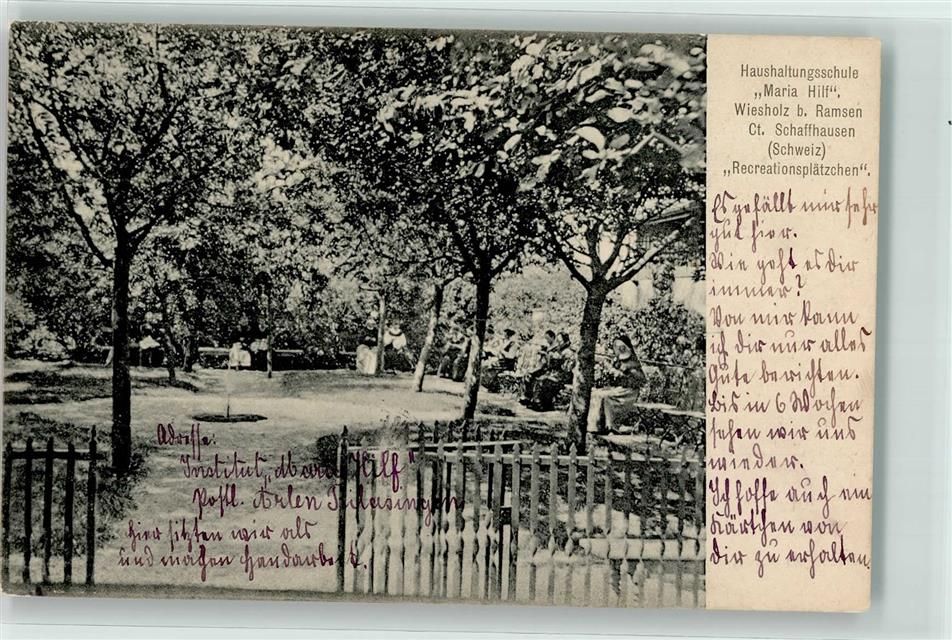 Haushaltungsschule
„Maria Hilf“.
Wiesholz b. Ramsen
Ct. Schaffhausen
(Schweiz)
„Recreationsplätzchen“.
Es gefällt mir sehr
gut hier.
Wie geht es dir
immer?
Von mir kann
ich dir nur alles
Gute berichten.
Bis in 6 Wochen
sehen wir uns
wieder.
Ich hoffe auch ein
Kärtchen von
dir zu erhalten.
Adresse:
Institut „Maria Hilf“
Postl. Arlen
hier sitzten wir als
und machen Handarbeit.